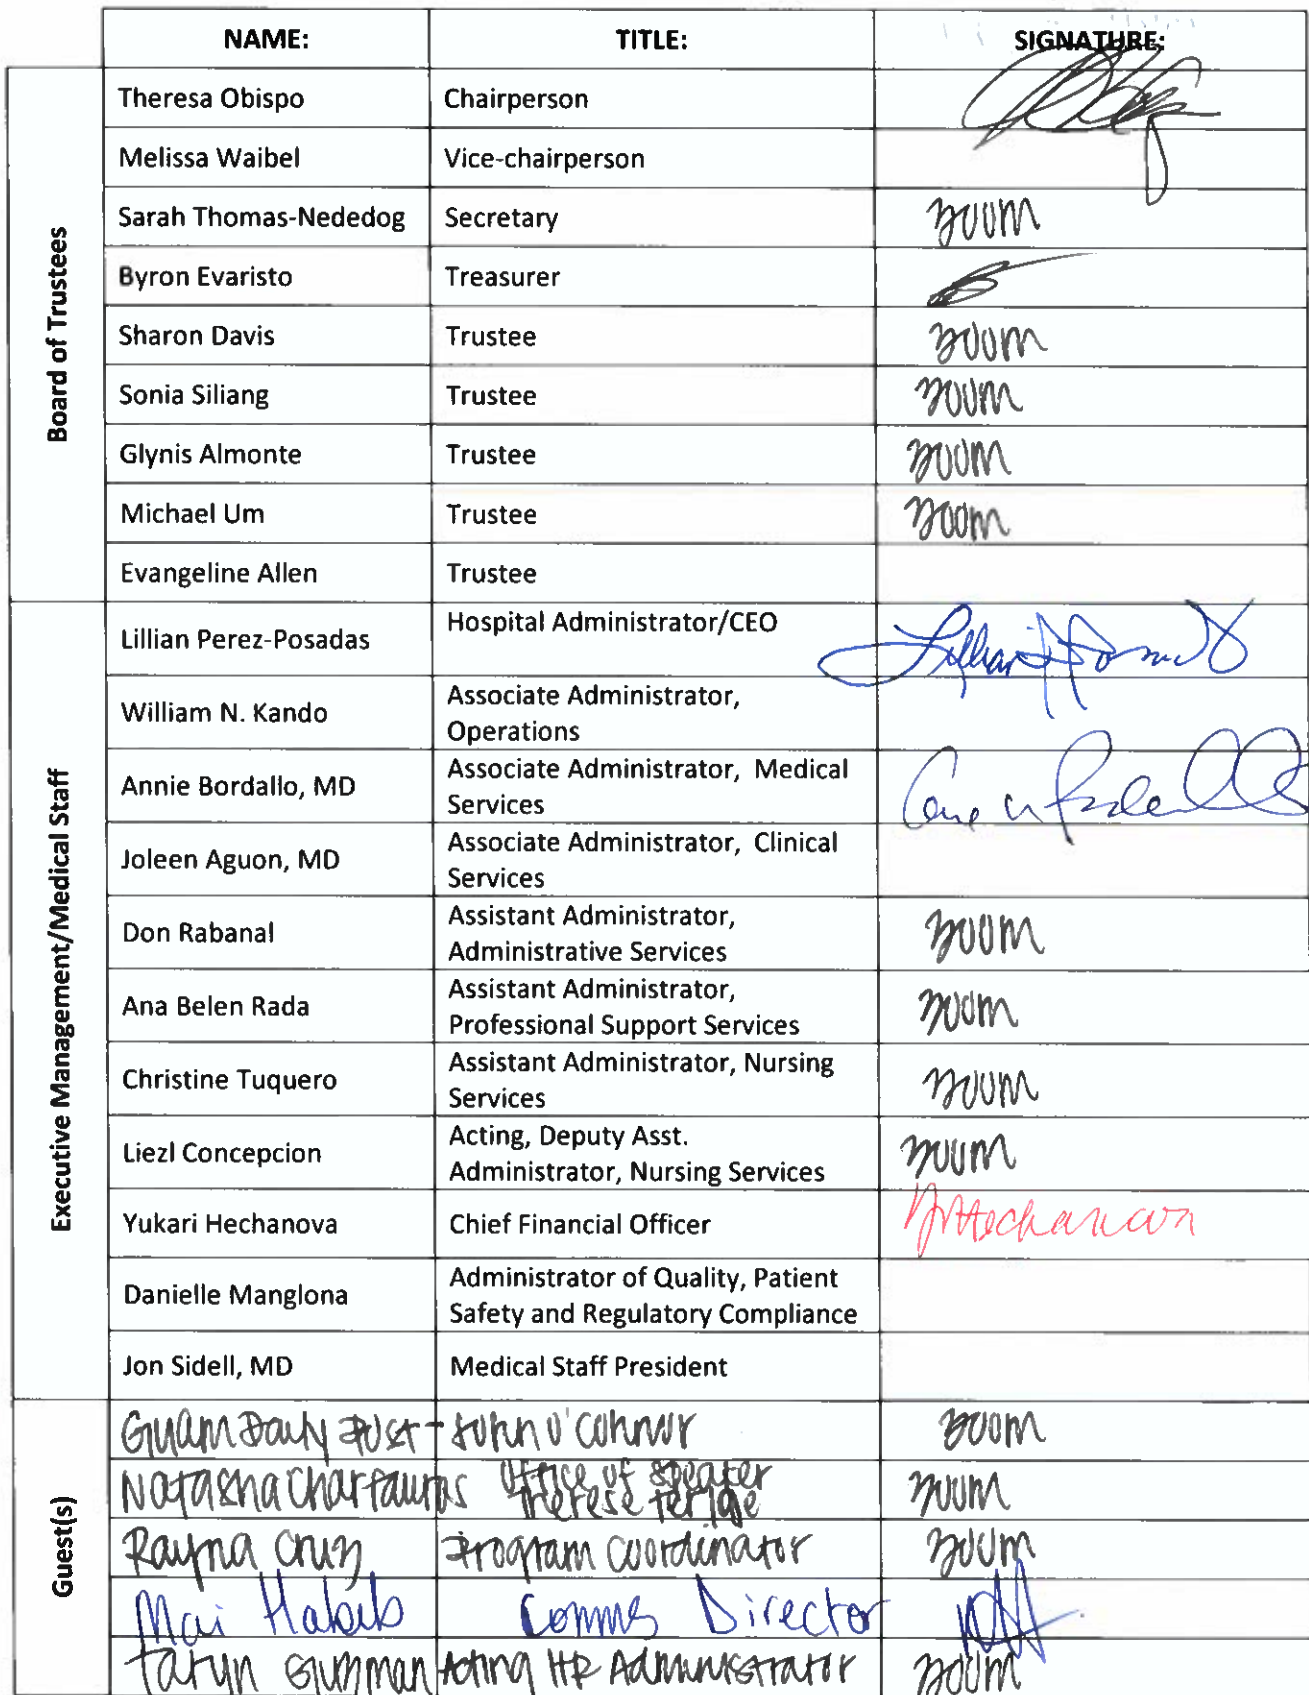 NAME: TITLE: SIGNATURE:
Board of Trustees
Theresa Obispo Chairperson
Melissa Waibel Vice-chairperson
Sarah Thomas-Nededog Secretary zoom
Byron Evaristo Treasurer
Sharon Davis Trustee zoom
Sonia Siliang Trustee zoom
Glynis Almonte Trustee zoom
Michael Um Trustee zoom
Evangeline Allen Trustee
Executive Management/Medical Staff
Lillian Perez-Posadas Hospital Administrator/CEO
William N. Kando Associate Administrator,
Operations
Annie Bordallo, MD Associate Administrator, Medical
Services
Joleen Aguon, MD Associate Administrator, Clinical
Services
Don Rabanal Assistant Administrator,
Administrative Services zoom
Ana Belen Rada Assistant Administrator,
Professional Support Services zoom
Christine Tuquero Assistant Administrator, Nursing
Services zoom
Liezl Concepcion Acting, Deputy Asst.
Administrator, Nursing Services zoom
Yukari Hechanova Chief Financial Officer YHechanova
Danielle Manglona Administrator of Quality, Patient
Safety and Regulatory Compliance
Jon Sidell, MD Medical Staff President
Guest(s)
Guam Daily Post - John O'Connor zoom
Natasha Charfauros Office of Speaker
Therese Terlaje zoom
Rayna Cruz Program Coordinator zoom
Mai Habib Comms Director
Taryn Guzman Acting HR Administrator zoom